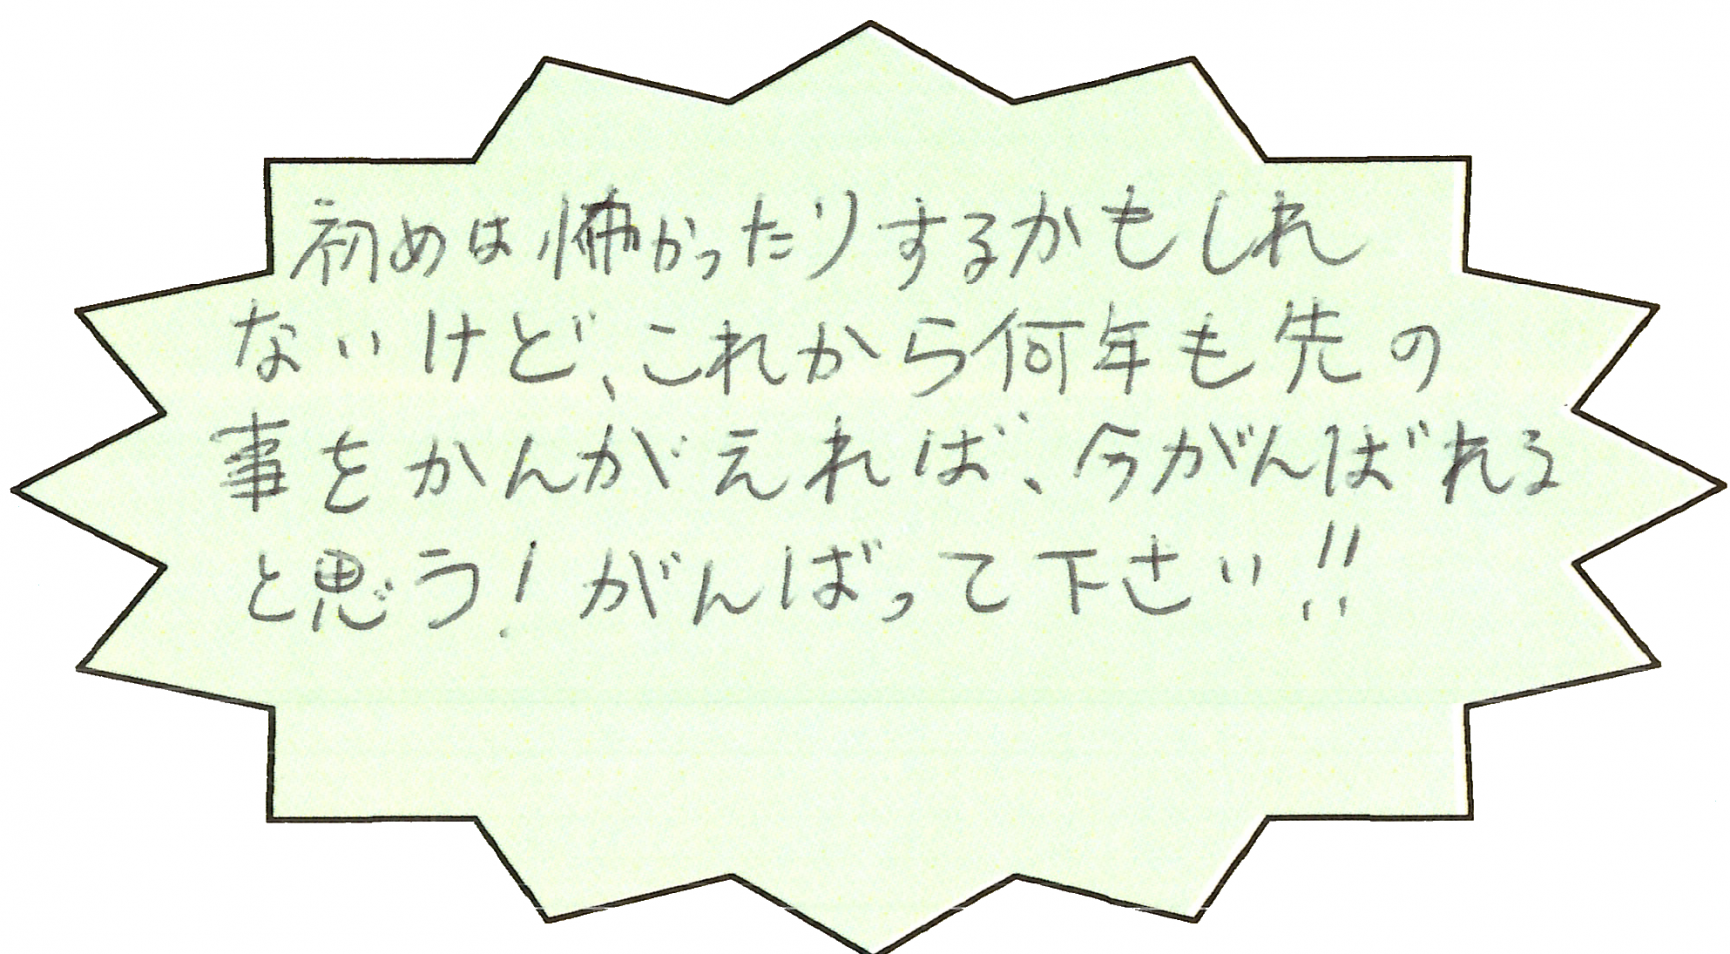 初めは怖かったりするかもしれ
ないけど、これから何年も先の
事をかんがえれば、今がんばれる
と思う！がんばって下さい!!